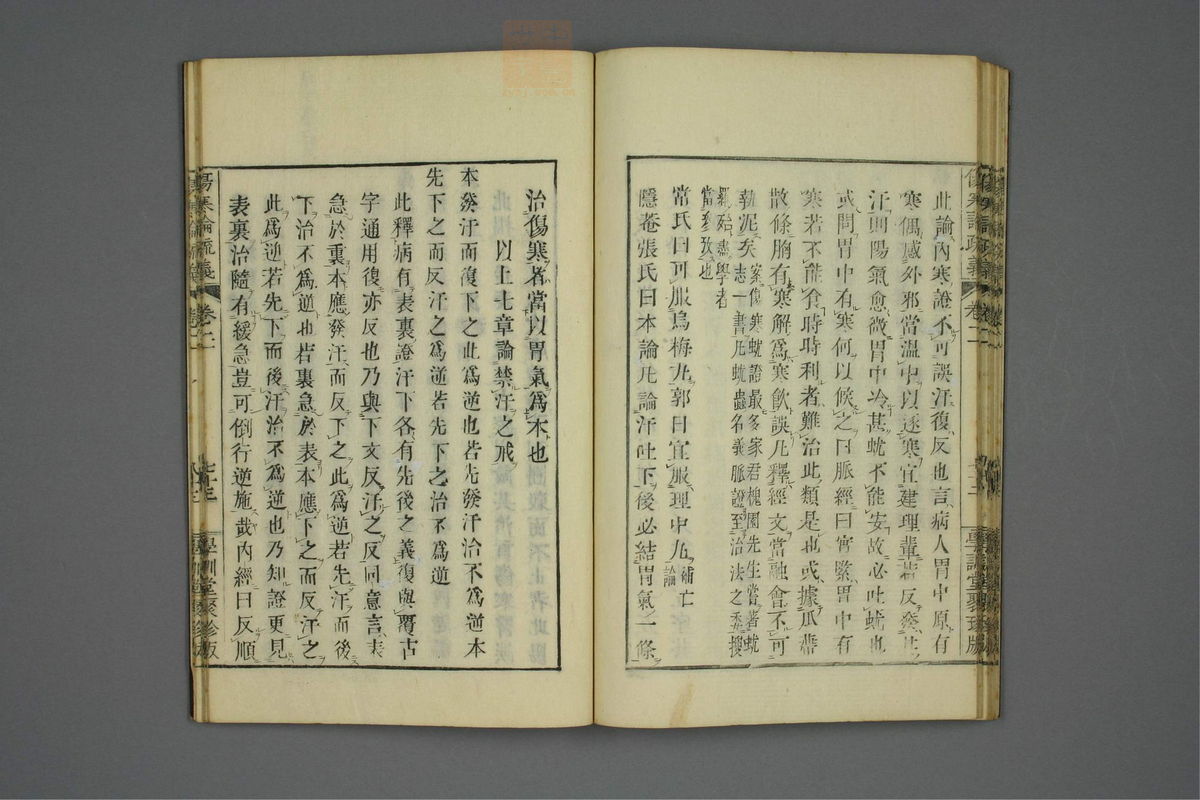 此論內寒證不可誤汗復反也言病人胃中原有
寒偶感外邪當溫中以逐寒宜建理輩若反發其
汗則陽氣愈微胃中冷甚蚘不能安故必吐蚘也
或問胃中有寒何以候之曰脈經曰實緊胃中有
寒若不能食時時利者難治此類是也或據瓜蒂
散條胸有寒解爲寒飮誤凡釋經文當融會不可
執泥矣
案傷寒蚘證最多家君槐園先生嘗著蚘
志一書凡蚘蟲名義脈證至治法之委搜
羅殆盡學者
當參攷也
常氏曰可服烏梅丸郭曰宜服理中丸
補亡
論
隱菴張氏曰本論凡論汗吐下後必結胃氣一條
治傷寒者當以胃氣爲本也
以上七章論禁汗之戒
本發汗而復下之此爲逆也若先發汗治不爲逆本
先下之而反汗之爲逆若先下之治不爲逆
此釋病有表裏證汗下各有先後之義復與覆古
字通用復亦反也乃與下文反汗之反同意言表
急於裏本應發汗而反下之此爲逆若先汗而後
下治不爲逆也若裏急於表本應下之而反汗之
此爲逆若先下而後汗治不爲逆也乃知證更見
表裏治隨有緩急豈可倒行逆施哉內經曰反順
傷寒論疏義
卷二
七十三
學訓堂聚珍版